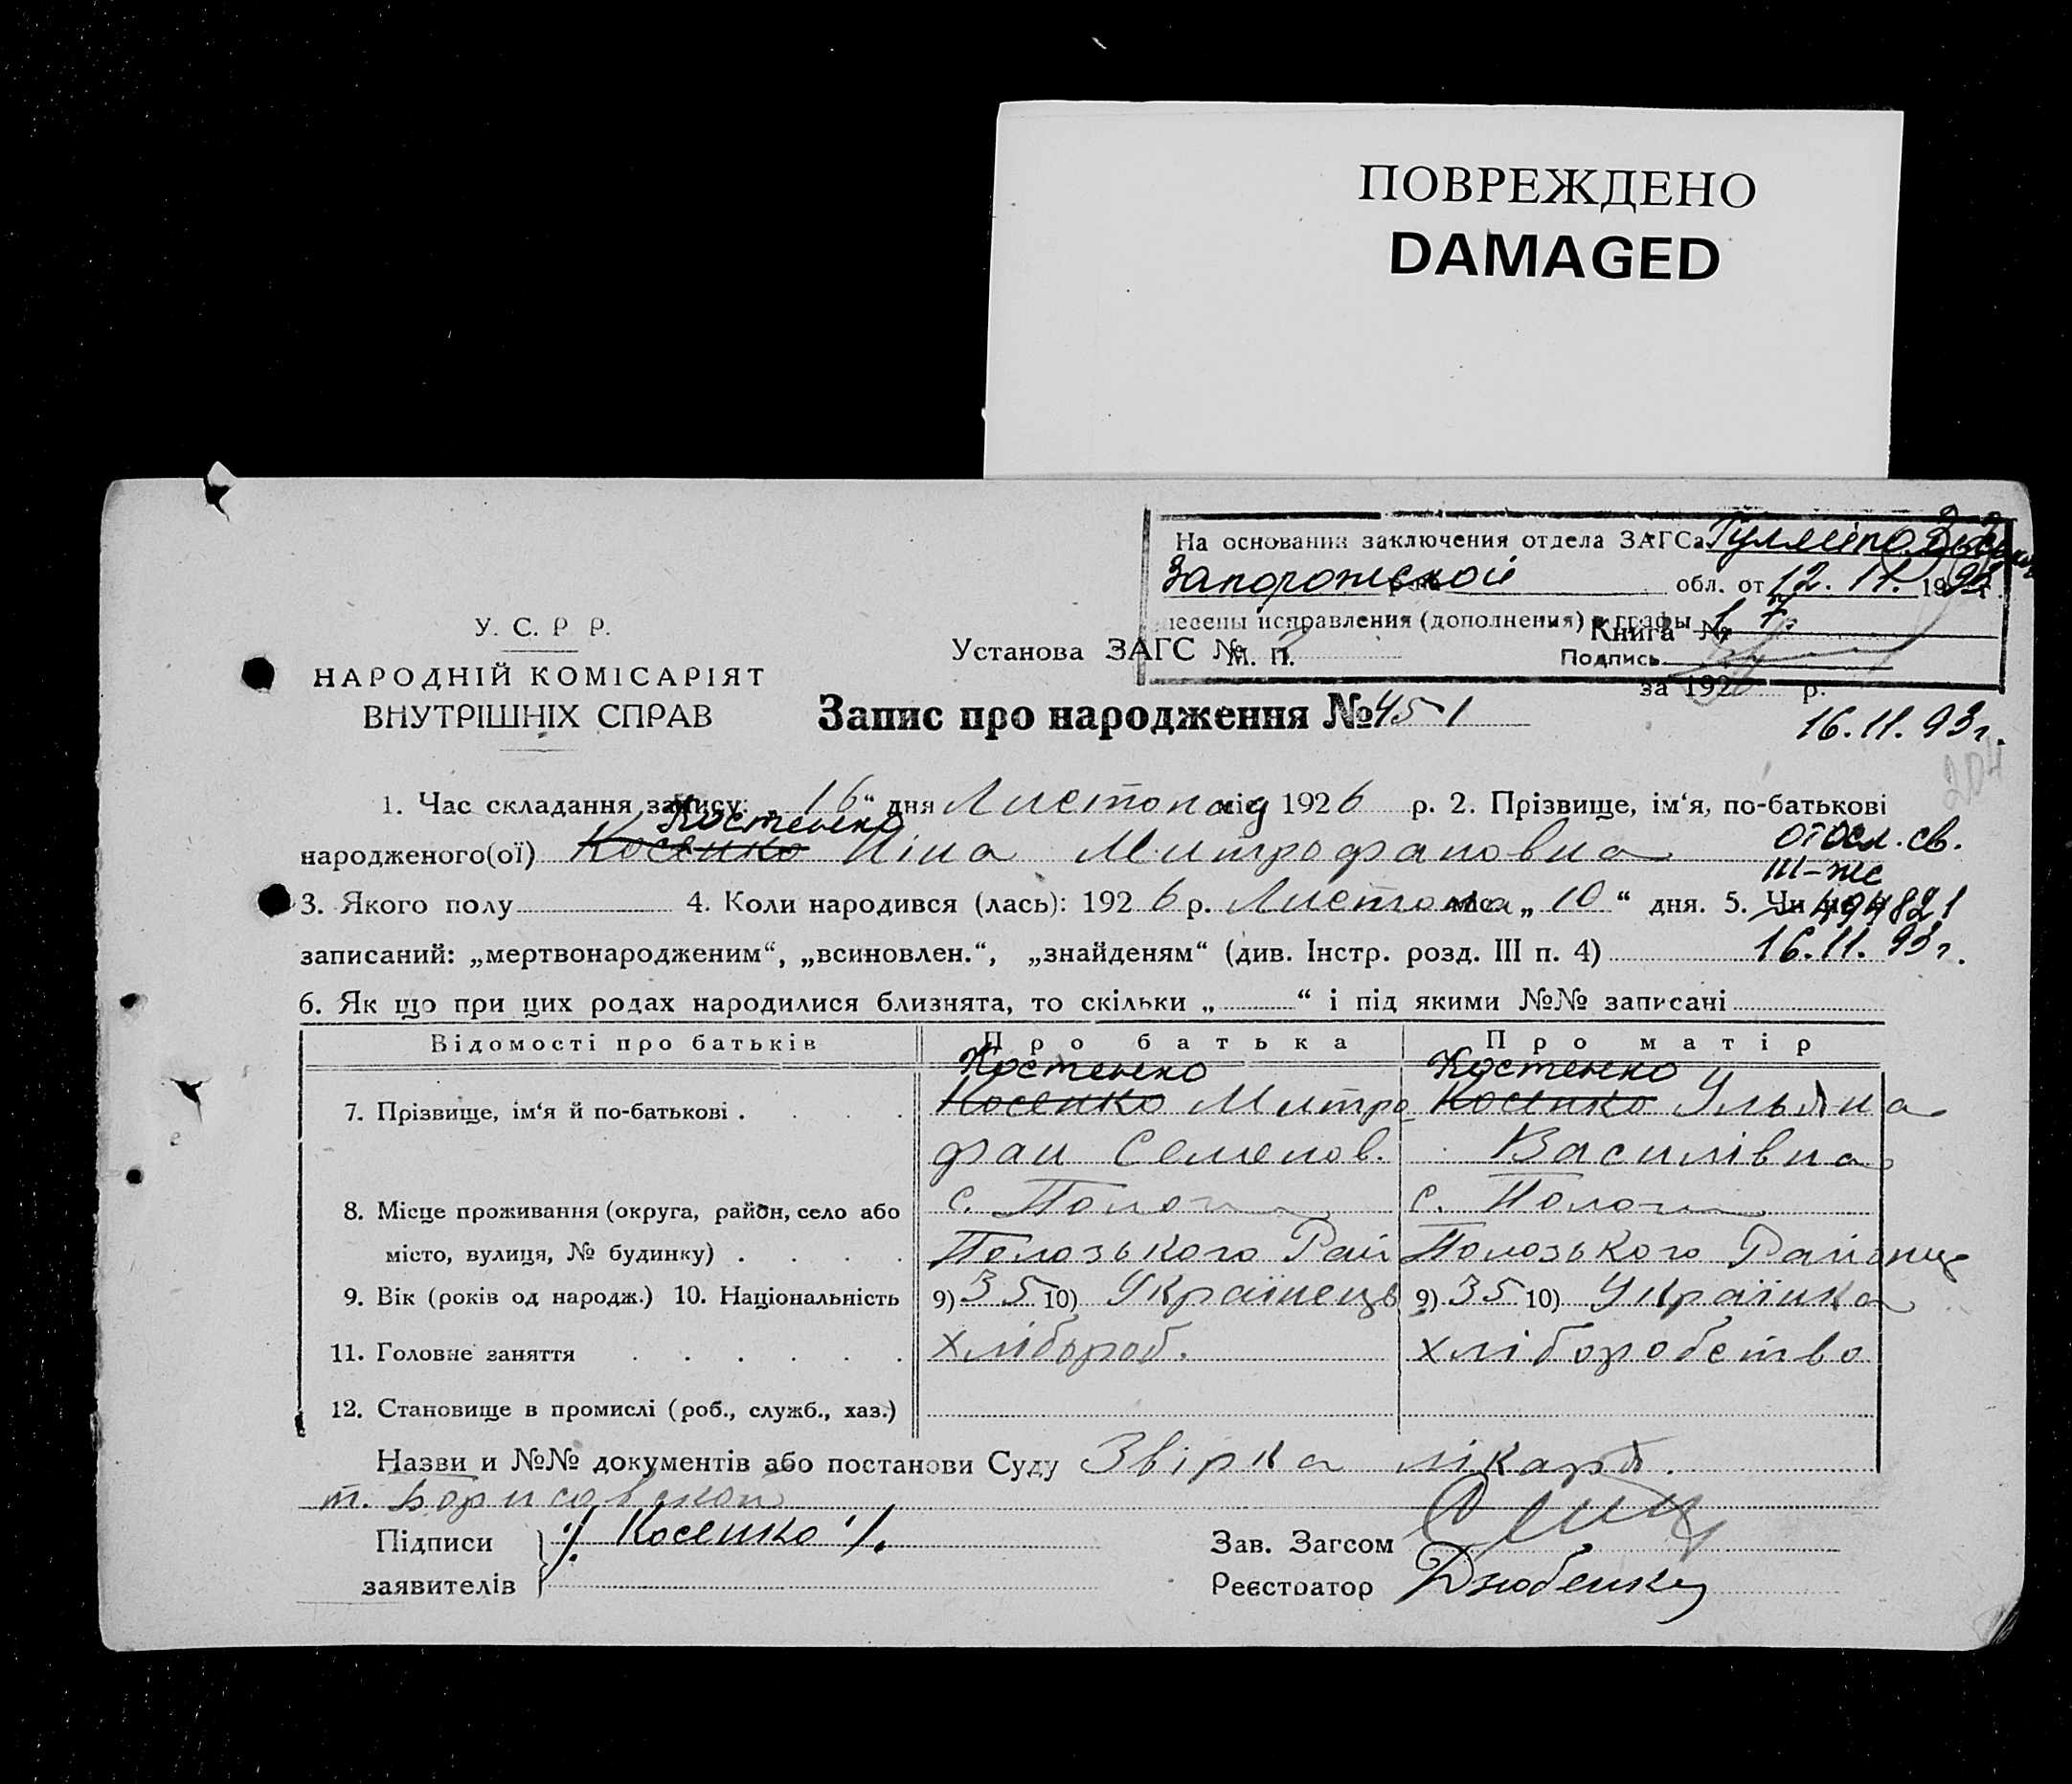 ПОВРЕЖДЕНО
DAMAGED
На основании заключения отдела ЗАГСа
Запорожской обл. от 12. 11. 1993 г.
несены исправления (дополнения) в графы 1, 7.
М. П. Подпись
У. С. Р Р.
НАРОДНІЙ КОМІСАРІЯТ
ВНУТРІШНІХ СПРАВ
Установа ЗАГС № 2 Книга №
за 1926 р.
Запис про народження № 451
16. 11. 93 г.
204
1. Час складання запису: „ 16 “ дня Листопад міс 1926 р. 2. Прізвище, ім‘я, по-батькові
Костенко
народженого(ої) Косенко Ніна Митрофановна
св.
III-жс
3. Якого полу 4. Коли народився (лась): 1926 р. Листопа міс „ 10 “ дня. 5. Чи не 494821
записаний: „мертвонародженим“, „всиновлен.“, „знайденям“ (див. Інстр. розд. III п. 4) 16. 11. 93 г.
6. Як що при цих родах народилися близнята, то скільки „ “ і під якими №№ записані
Відомості про батьків Про батька Про матір
Костенко Костенко
7. Прізвище, ім‘я й по-батькові . . . . Косенко Митро Косенко Ульяна
фан Семенов. Василівна
с. Пологи с. Пологи
8. Місце проживання (округа, район, село або
місто, вулиця, № будинку) . . . . Полозького Рай Полозького Району
9. Вік (років од народж.) 10. Національність 9) 35 10) Українець 9) 35 10) Українка
11. Головне заняття . . . . . . хлібороб. хліборобство
12. Становище в промислі (роб., служб., хаз.)
Назви и №№ документів або постанови Суду Звірка лікаря.
т. Борисовской
Підписи /. Косенко /. Зав. Загсом
заявителів Реєстратор Дзюбенко